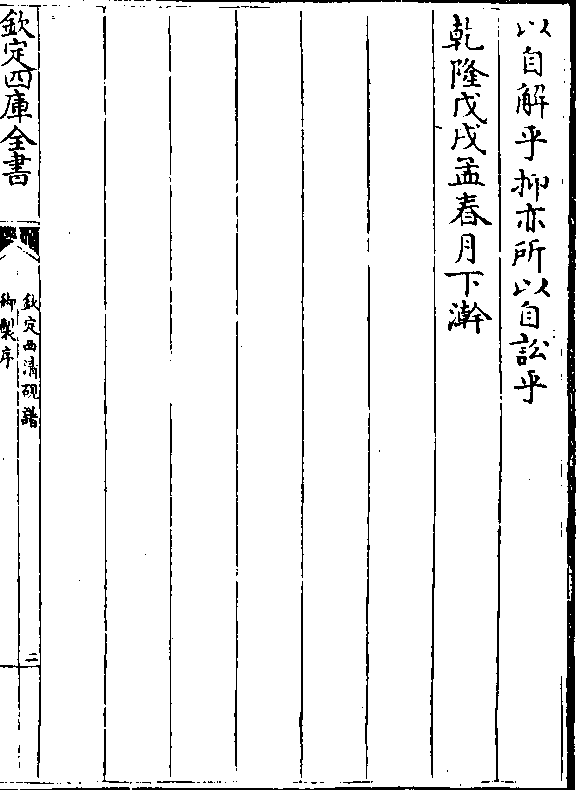 以自解乎抑亦所以自訟乎
乾隆戊戌孟春月下澣
欽定四庫全書
欽定西清硯譜
御製序
二